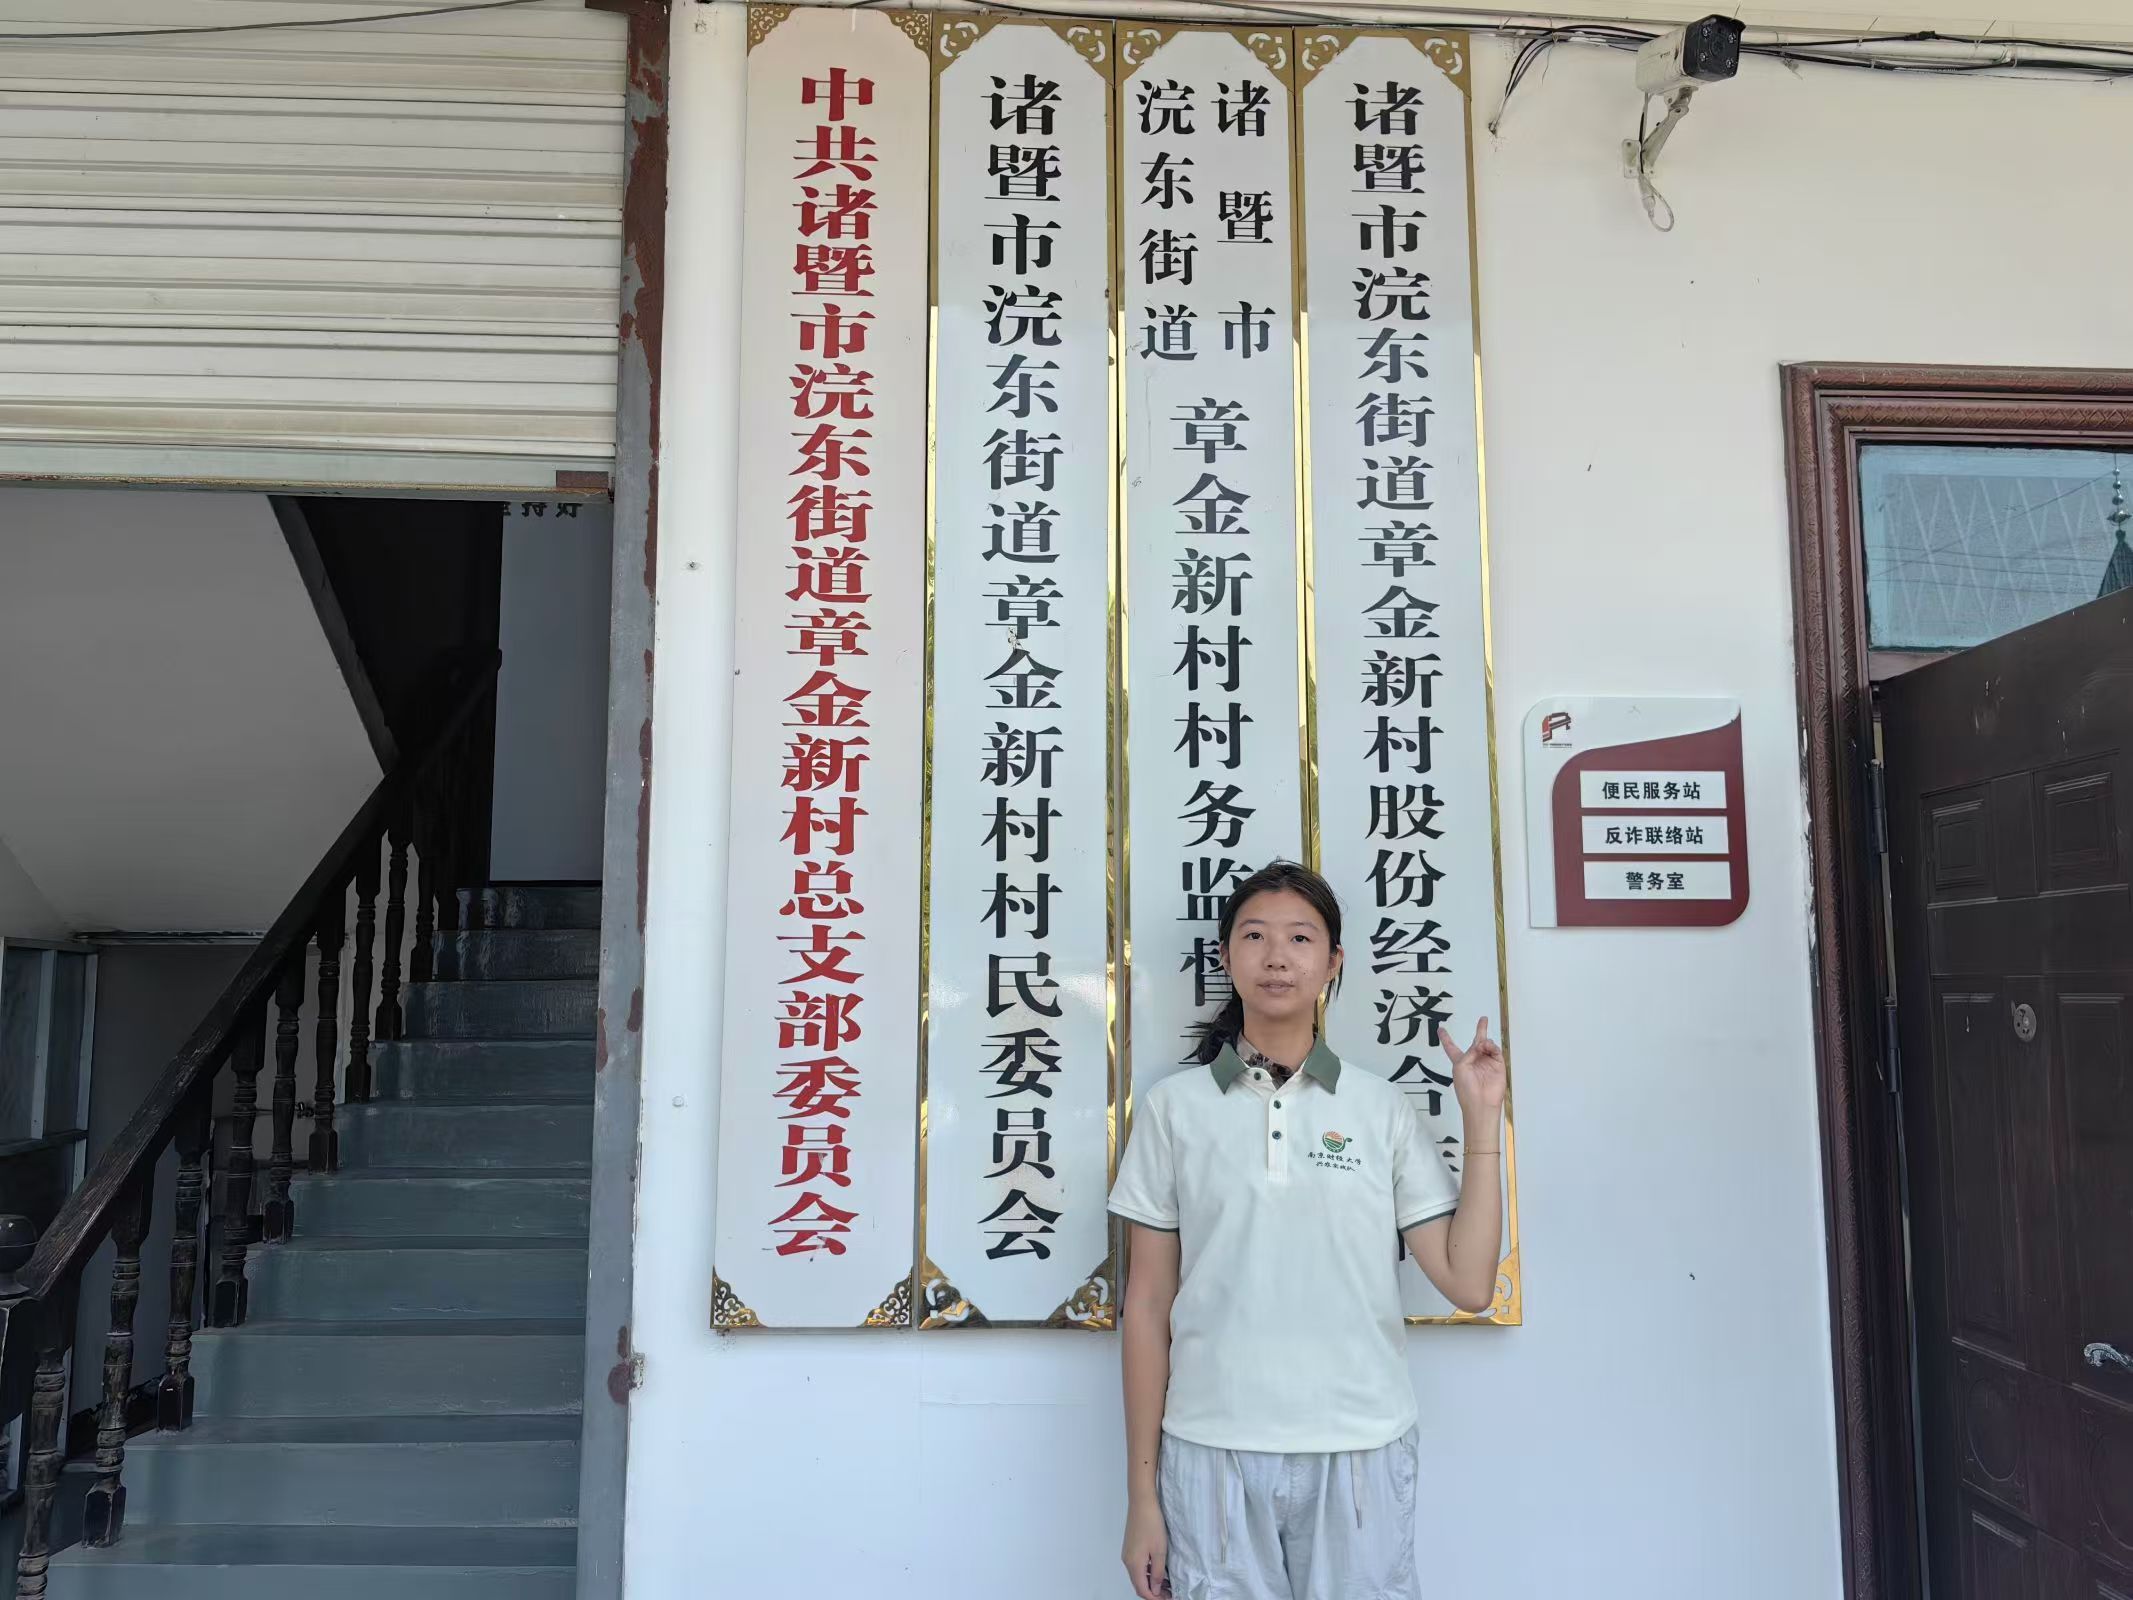 中共诸暨市浣东街道章金新村总支部委员会
诸暨市浣东街道章金新村村民委员会
诸暨市
浣东街道
章金新村村务监督
诸暨市浣东街道章金新村股份经济合
便民服务站
反诈联络站
警务室
南京财经大学